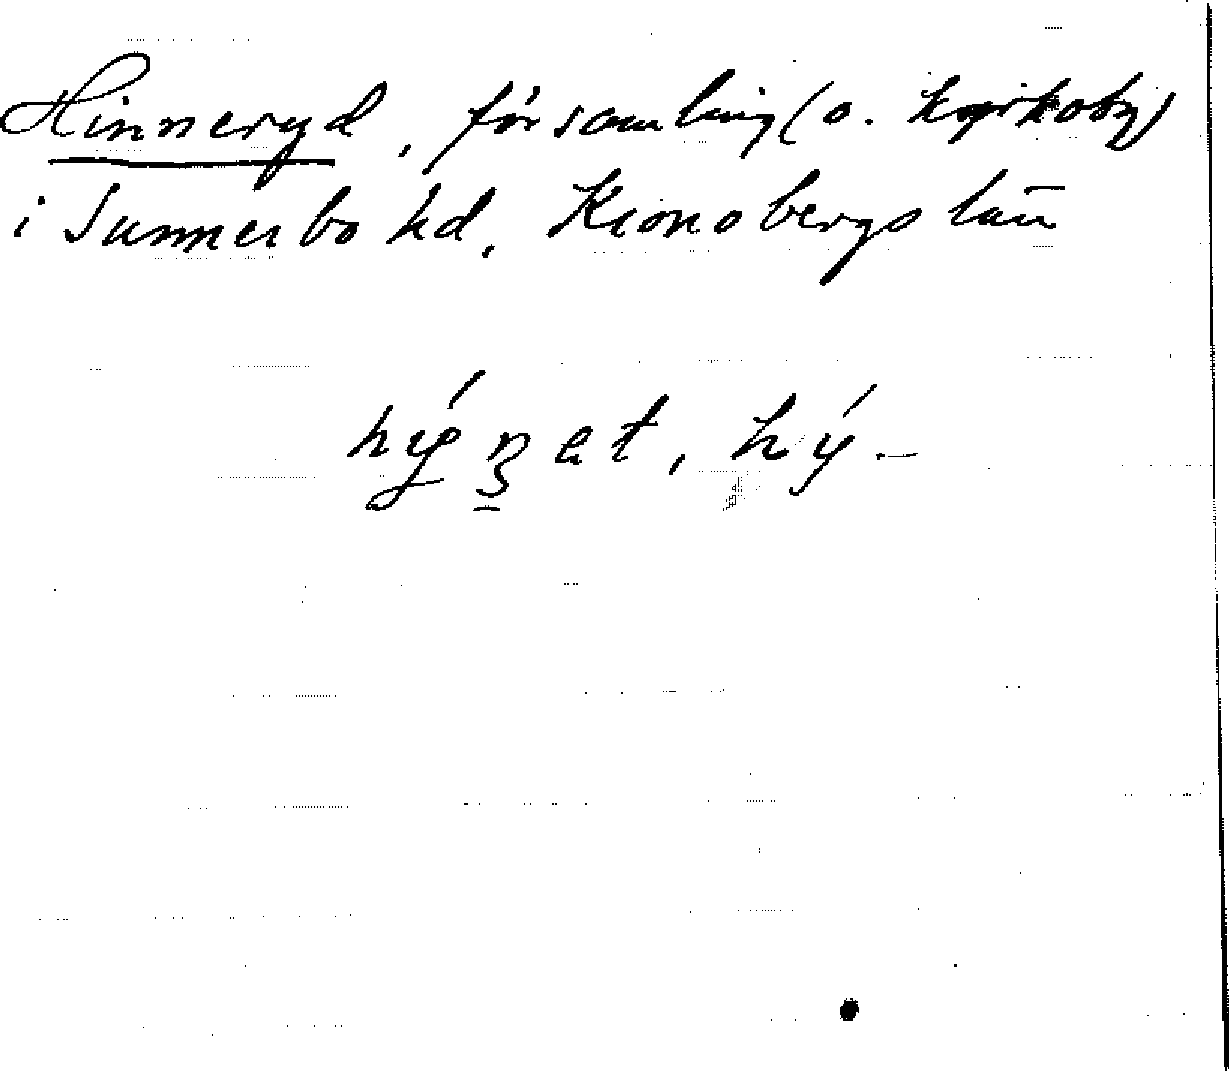 Hinneryd, församling (o. kyrkoby)
i Sunnerbo hd, Kronobergs län
hý-